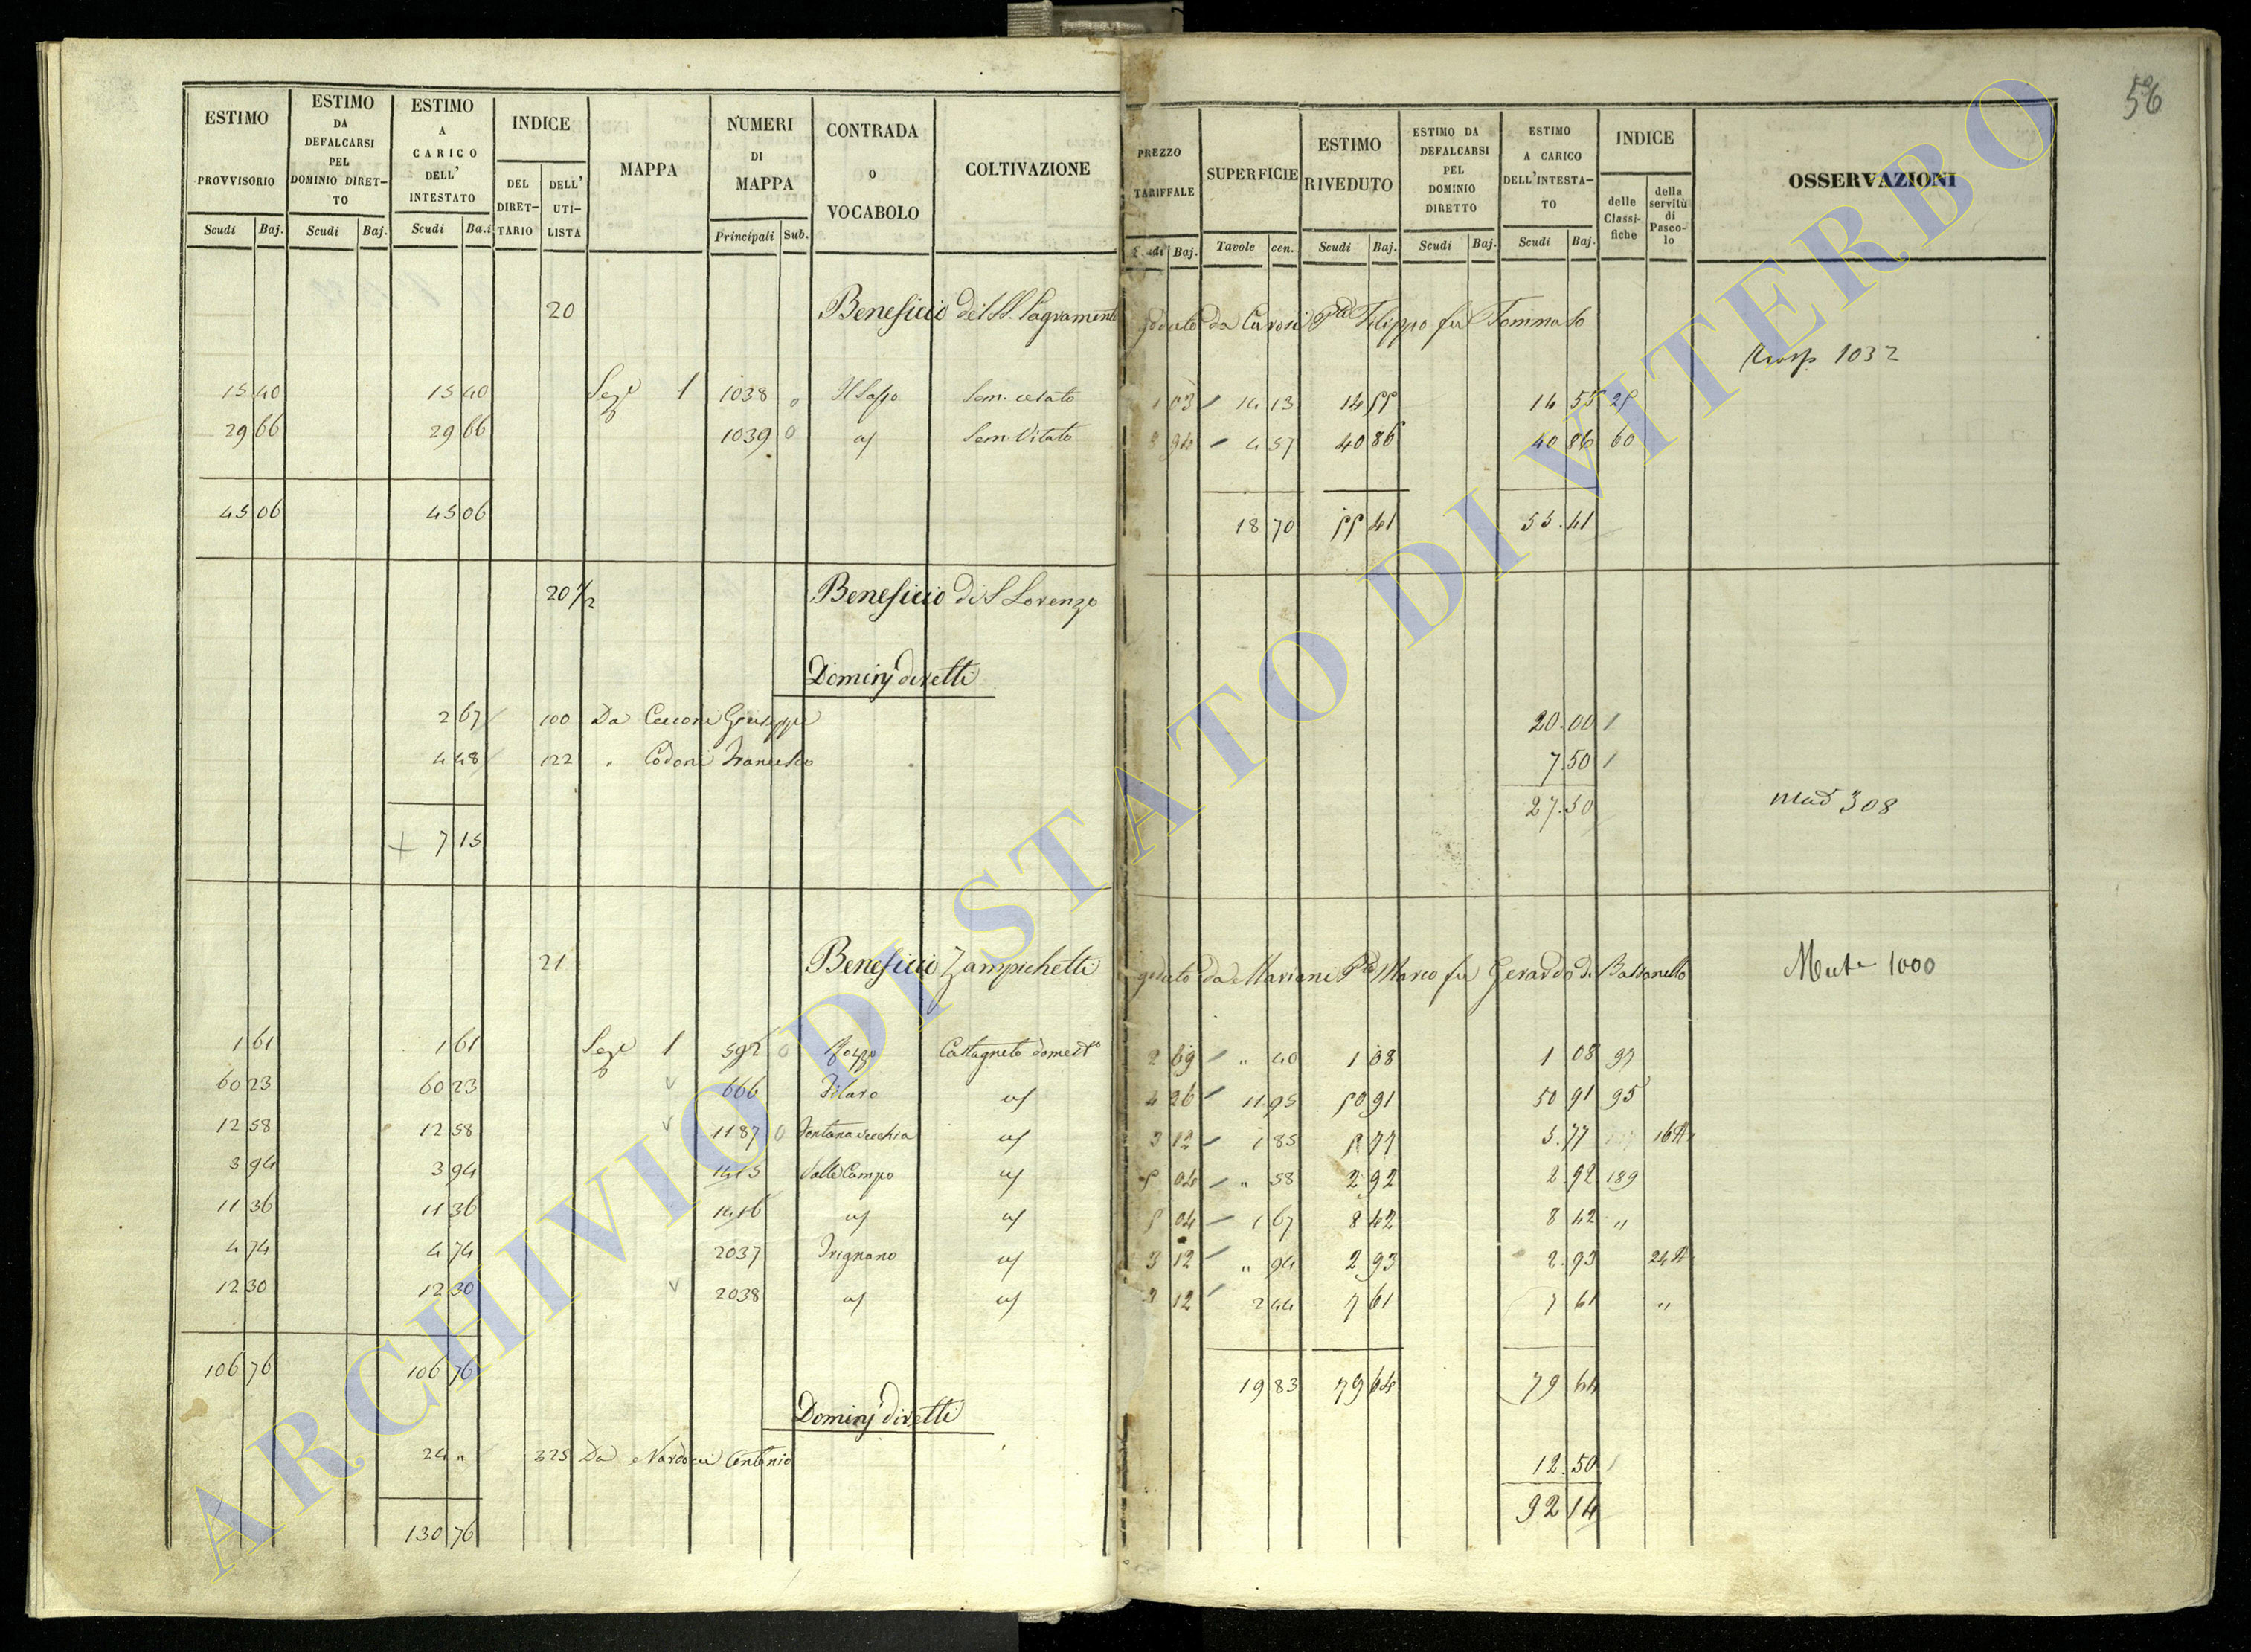 56
ESTIMO PROVVISORIO Scudi Baj. | ESTIMO DA DEFALCARSI PEL DOMINIO DIRET-TO Scudi Baj. | ESTIMO A CARICO DELL' INTESTATO Scudi Ba.i | INDICE DEL DIRET-TARIO DELL' UTI-LISTA | MAPPA | NUMERI DI MAPPA Principali Sub. | CONTRADA O VOCABOLO | COLTIVAZIONE | PREZZO TARIFFALE Baj. | SUPERFICIE Tavole cen. | ESTIMO RIVEDUTO Scudi Baj. | ESTIMO DA DEFALCARSI PEL DOMINIO DIRETTO Scudi Baj. | ESTIMO A CARICO DELL'INTESTA-TO Scudi Baj. | INDICE delle Classi-fiche della servitù di Pasco-lo | OSSERVAZIONI
20 Beneficio del SS. Sagramento goduto da Filippo fu Tommaso
1032
15 40 15 40 Sez.e 1 1038 0 Il Sasso Sem. 1 03 14 13 14 55 14 55 25
29 66 29 66 1039 0 Sem. Vitato 94 4 57 40 86 40 86 60
45 06 45 06 18 70 55 41 55.41
20 1/2 Beneficio di S Lorenzo
Dominj diretti
2 67 100 Da Cecconi Giuseppe 20.00
4 48 122 " Codoni Francesco 7.50
7 15 27.50 308
21 Beneficio Zampichetti goduto da Mariani Marco fu Gerardo di Bassanello
1000
1 61 1 61 Sez.e 1 592 0 Castagneto domest.o 2 69 " 40 1 08 1 08 97
60 23 60 23 666 4 26 11 95 50 91 50 91 95
12 58 12 58 1187 0 Fontana Vecchia 3 12 1 85 5 77 5.77
3 94 3 94 1415 Valle Campo 5 04 " 58 2 92 2.92 189
11 36 11 36 1416 5 04 1 67 8 42 8 42 "
4 74 4 74 2037 Trignano 3 12 " 94 2 93 2.93
12 30 12 30 2038 3 12 2 44 7 61 7 61 "
106 76 106 76 19 83 79 64 79 64
Dominj diretti
24 " 325 Da Nardocci Antonio 12.50
130 76 92 14
ARCHIVIO DI STATO DI VITERBO